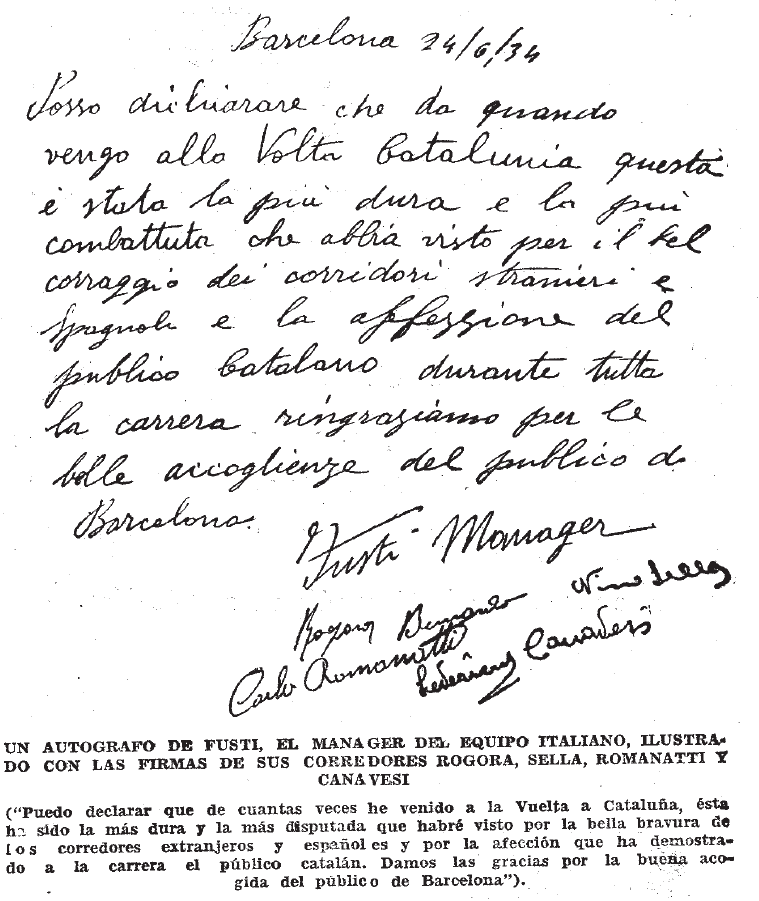 Barcelona 24/6/34
Posso dichiarare che da quando
vengo alla Volta Catalunia questa
è stata la più dura e la più
combattuta che abbia visto per il bel
corraggio dei corridori stranieri e
spagnoli e la affezzione del
publico Catalano durante tutta
la carrera ringraziamo per le
belle accoglienze del publico di
Barcelona.
Fusti Manager
Nino Sella
Rogora Bernardo
Carlo Romanatti
Federico Canavesi
UN AUTOGRAFO DE FUSTI, EL MANAGER DEL EQUIPO ITALIANO, ILUSTRA-
DO CON LAS FIRMAS DE SUS CORREDORES ROGORA, SELLA, ROMANATTI Y
CANAVESI
("Puedo declarar que de cuantas veces he venido a la Vuelta a Cataluña, ésta
ha sido la más dura y la más disputada que habré visto por la bella bravura de
los corredores extranjeros y españoles y por la afección que ha demostra-
do a la carrera el público catalán. Damos las gracias por la buena aco-
gida del público de Barcelona").